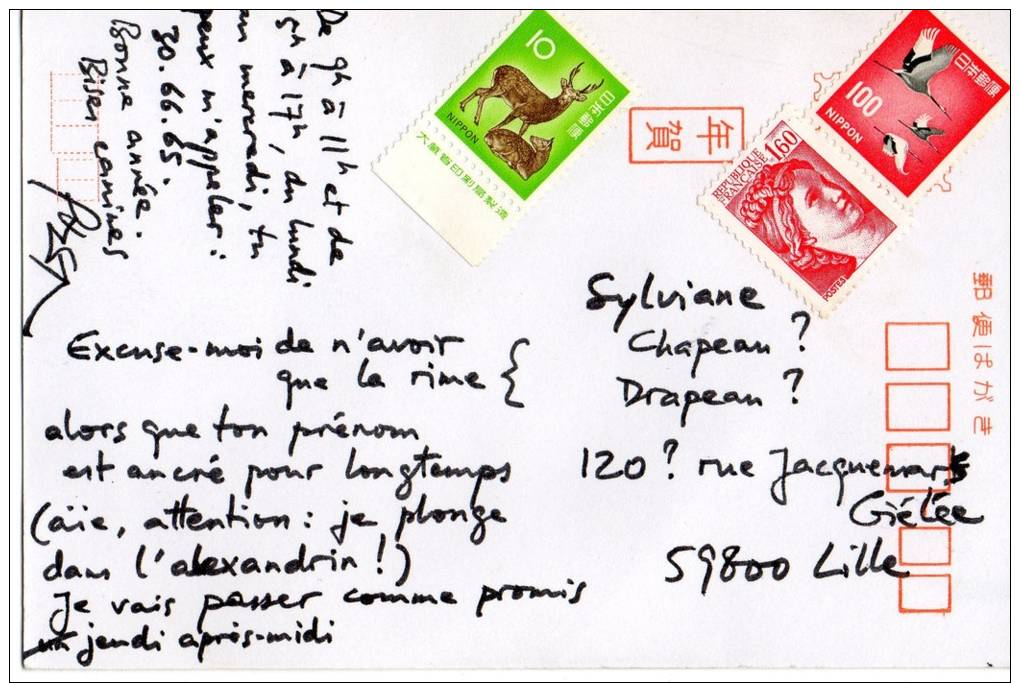 Excuse-moi de n'avoir
que la rime {
alors que ton prénom
est ancré pour longtemps
(aïe, attention : je plonge
dans l'alexandrin !)
Je vais passer comme promis
un jeudi après-midi
De 9h à 11h et de
à 17h, du lundi
au mercredi, tu
peux m'appeler :
30.66.65.
Bonne année.
Bises
Sylviane
Chapeau ?
Drapeau ?
120 ? rue Jacquemars
Giélée
59800 Lille
10
日本郵便
NIPPON
大蔵省印刷局製造
年賀
REPUBLIQUE
FRANÇAISE
1,60
POSTES
100
日本郵便
NIPPON
郵便はがき